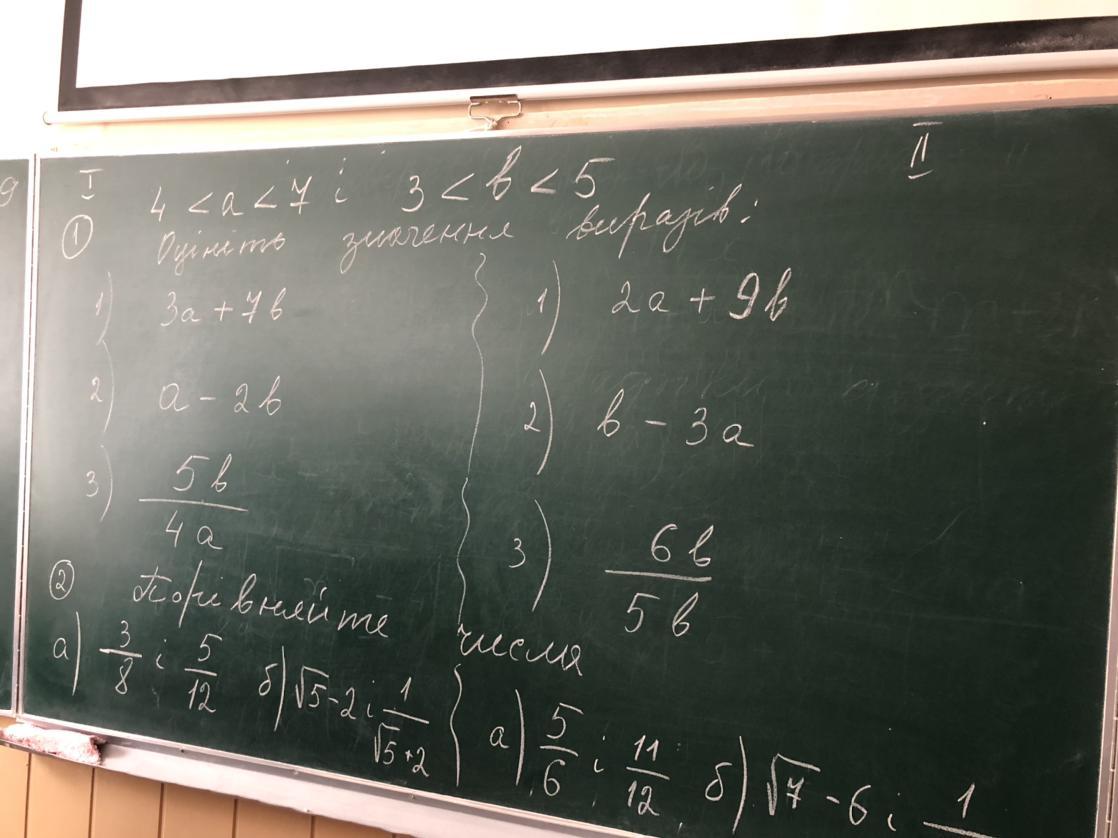 I II
4 < a < 7 і 3 < b < 5
① Оцініть значення виразів:
1) 3a + 7b 1) 2a + 9b
2) a - 2b 2) b - 3a
3) 5b/4a 3) 6b/5b
② Порівняйте числа
а) 3/8 і 5/12 б) √5 - 2 і 1/(√5+2) а) 5/6 і 11/12 б) √7 - 6 і 1